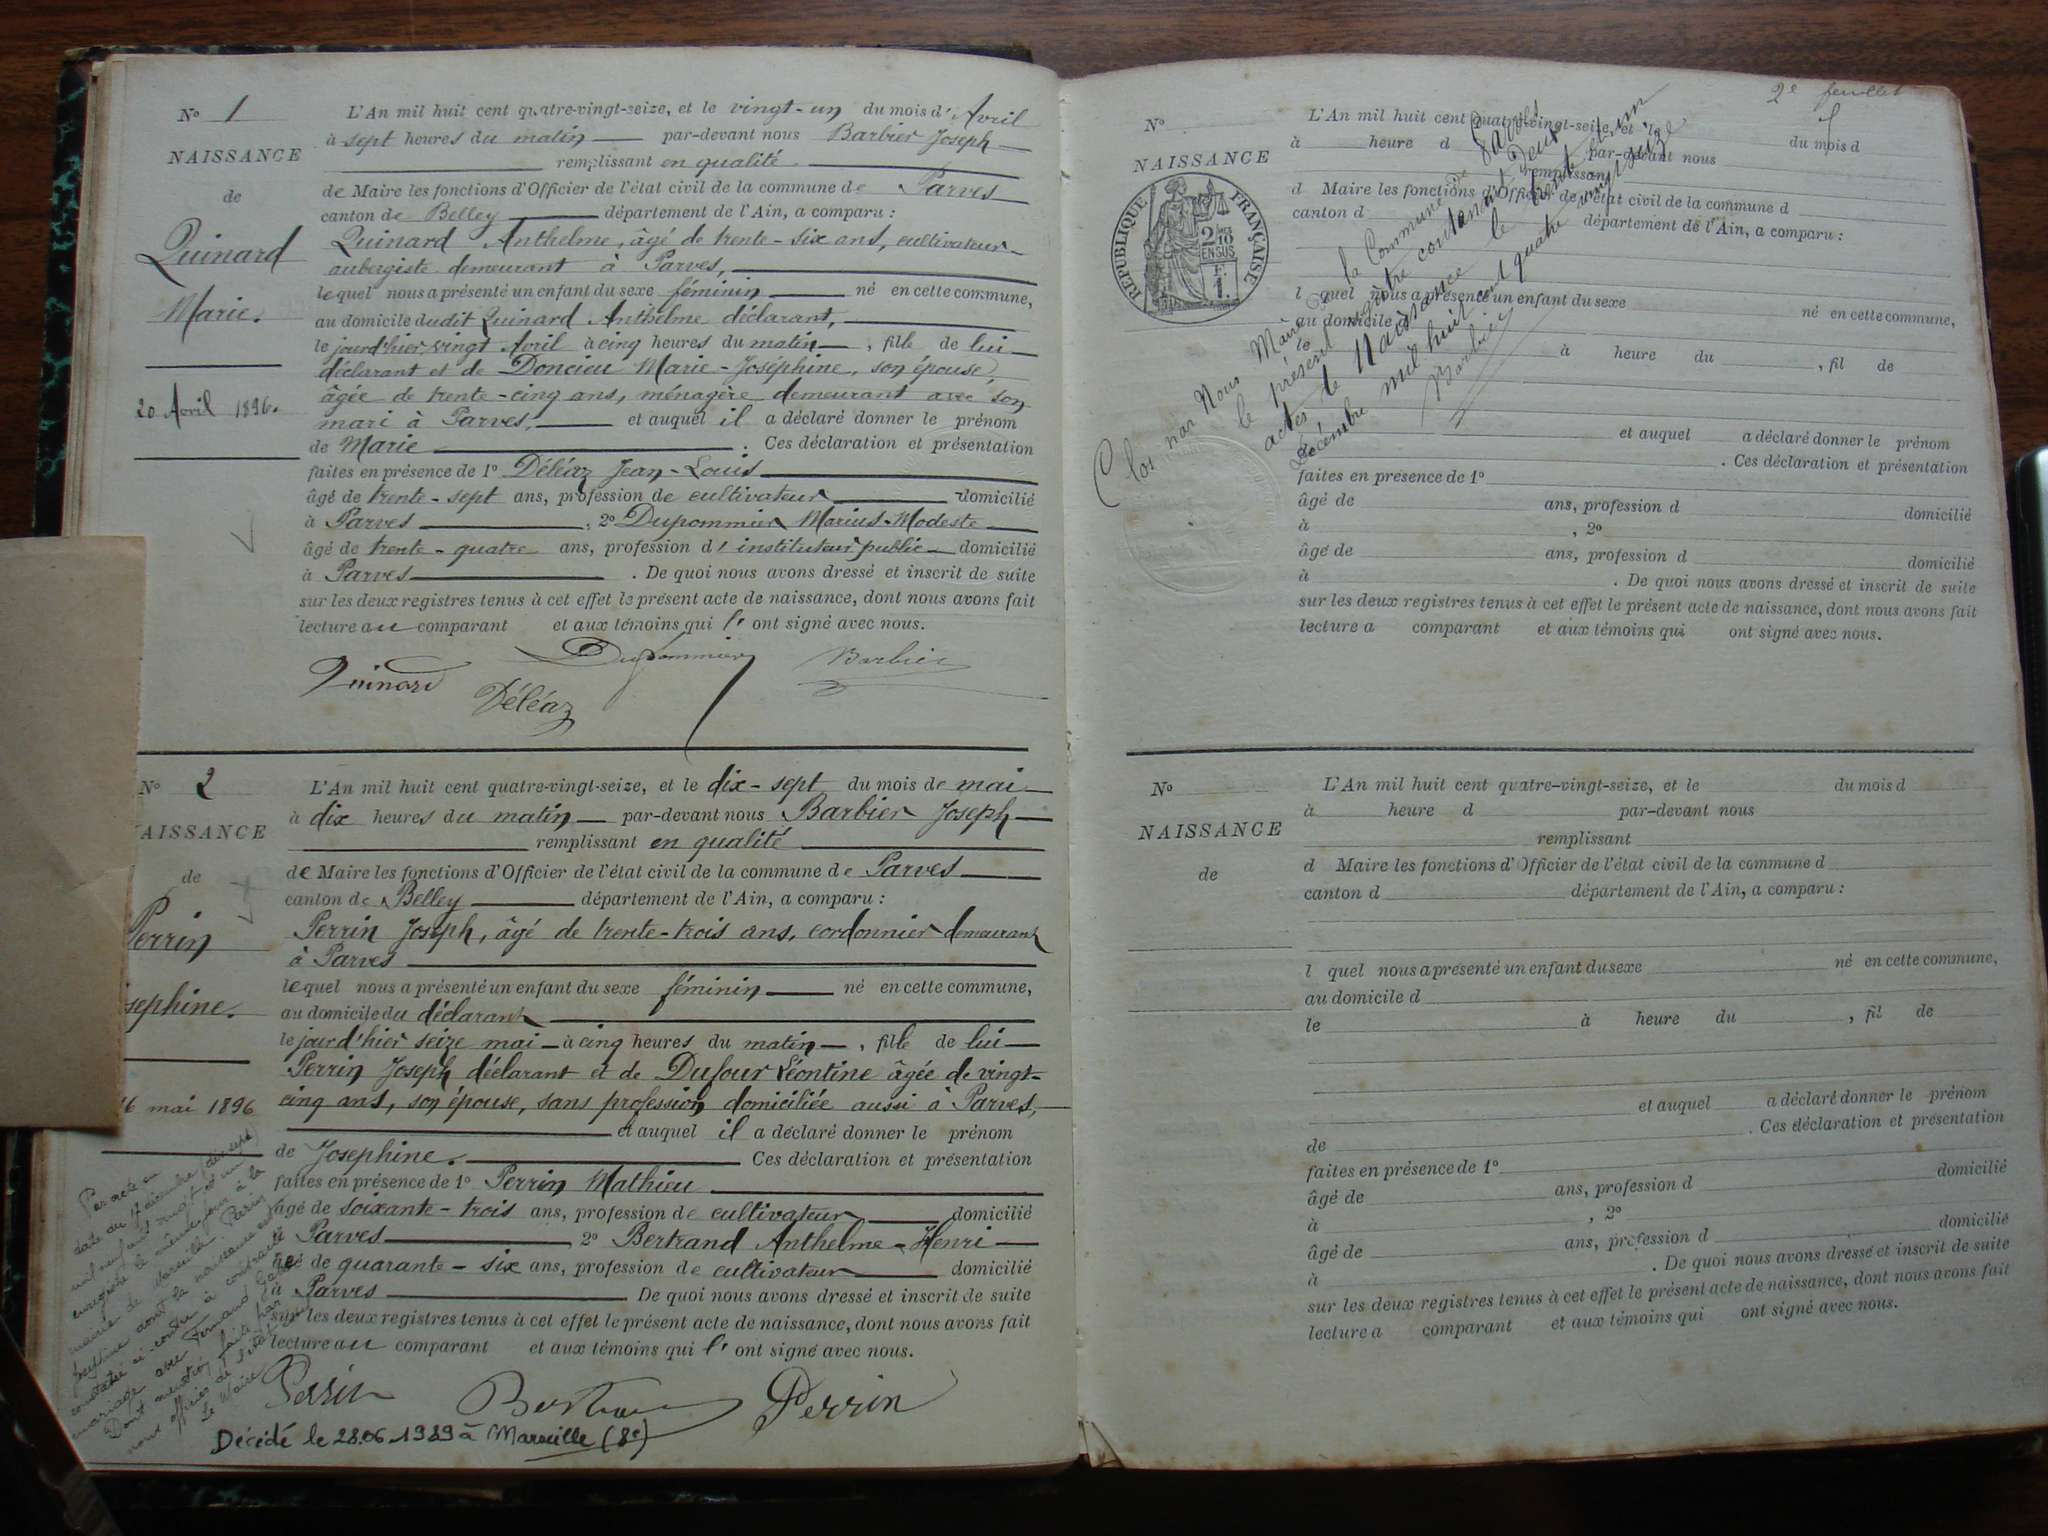 N° 1
NAISSANCE
de
Quinard
Marie.
20 Avril 1896.
L'An mil huit cent quatre-vingt-seize, et le vingt-un du mois d'Avril
à sept heures du matin par-devant nous Barbier Joseph
remplissant en qualité
de Maire les fonctions d'Officier de l'état civil de la commune de Parves
canton de Belley département de l'Ain, a comparu :
Quinard Anthelme, âgé de trente-six ans, cultivateur
aubergiste demeurant à Parves,
lequel nous a présenté un enfant du sexe féminin né en cette commune,
au domicile dudit Quinard Anthelme déclarant,
le jourd'hier vingt Avril à cinq heures du matin, fille de lui
déclarant et de Doncieu Marie-Joséphine, son épouse,
âgée de trente-cinq ans, ménagère demeurant avec son
mari à Parves, et auquel il a déclaré donner le prénom
de Marie. Ces déclaration et présentation
faites en présence de 1° Déléaz Jean-Louis
âgé de trente-sept ans, profession de cultivateur domicilié
à Parves, 2° Dupommier Marius-Modeste
âgé de trente-quatre ans, profession d'instituteur public domicilié
à Parves. De quoi nous avons dressé et inscrit de suite
sur les deux registres tenus à cet effet le présent acte de naissance, dont nous avons fait
lecture au comparant et aux témoins qui l'ont signé avec nous.
Quinard Dupommier Barbier
Déléaz
N° 2
AISSANCE
de
Perrin
sephine.
16 mai 1896
L'An mil huit cent quatre-vingt-seize, et le dix-sept du mois de mai
à dix heures du matin par-devant nous Barbier Joseph
remplissant en qualité
de Maire les fonctions d'Officier de l'état civil de la commune de Parves
canton de Belley département de l'Ain, a comparu :
Perrin Joseph, âgé de trente-trois ans, cordonnier demeurant
à Parves
lequel nous a présenté un enfant du sexe féminin né en cette commune,
au domicile du déclarant
le jourd'hier seize mai à cinq heures du matin, fille de lui
Perrin Joseph déclarant et de Dufour Léontine âgée de vingt-
cinq ans, son épouse, sans profession domiciliée aussi à Parves,
et auquel il a déclaré donner le prénom
de Josephine. Ces déclaration et présentation
faites en présence de 1° Perrin Mathieu
âgé de soixante-trois ans, profession de cultivateur domicilié
Parves 2° Bertrand Anthelme-Henri
âgé de quarante-six ans, profession de cultivateur domicilié
à Parves De quoi nous avons dressé et inscrit de suite
sur les deux registres tenus à cet effet le présent acte de naissance, dont nous avons fait
lecture au comparant et aux témoins qui l'ont signé avec nous.
Perrin Bertrand Perrin
Décédé le 28.06.1989 à Marseille (8e)
Par acte en
date du 17 décembre (dix sept)
mil neuf cent vingt et un
enregistré le même jour à la
mairie de Marseille Perrin
Josephine dont la naissance est
constatée ci-contre à contracté
mariage avec Fernand
Dont mention faite par
nous officier de l'état
Le Maire
2e feuillet
N°
NAISSANCE
RÉPUBLIQUE FRANÇAISE
2 10
EN SUS
F.
1.
L'An mil huit cent quatre-vingt-seize, et le du mois d
à heure d par-devant nous
remplissant
d Maire les fonctions d'Officier de l'état civil de la commune d
canton d département de l'Ain, a comparu :
l quel nous a présenté un enfant du sexe né en cette commune,
au domicile d
le à heure du , fil de
et auquel a déclaré donner le prénom
de . Ces déclaration et présentation
faites en présence de 1°
âgé de ans, profession d domicilié
à , 2°
âgé de ans, profession d domicilié
à . De quoi nous avons dressé et inscrit de suite
sur les deux registres tenus à cet effet le présent acte de naissance, dont nous avons fait
lecture a comparant et aux témoins qui ont signé avec nous.
Clos par Nous Maire de la Commune de Parves
le présent registre contenant Deux
actes de Naissance le trente et un
Décembre mil huit cent quatre vingt seize
Barbier
N°
NAISSANCE
de
L'An mil huit cent quatre-vingt-seize, et le du mois d
à heure d par-devant nous
remplissant
d Maire les fonctions d'Officier de l'état civil de la commune d
canton d département de l'Ain, a comparu :
l quel nous a présenté un enfant du sexe né en cette commune,
au domicile d
le à heure du , fil de
et auquel a déclaré donner le prénom
de . Ces déclaration et présentation
faites en présence de 1°
âgé de ans, profession d domicilié
à , 2°
âgé de ans, profession d domicilié
à . De quoi nous avons dressé et inscrit de suite
sur les deux registres tenus à cet effet le présent acte de naissance, dont nous avons fait
lecture a comparant et aux témoins qui ont signé avec nous.